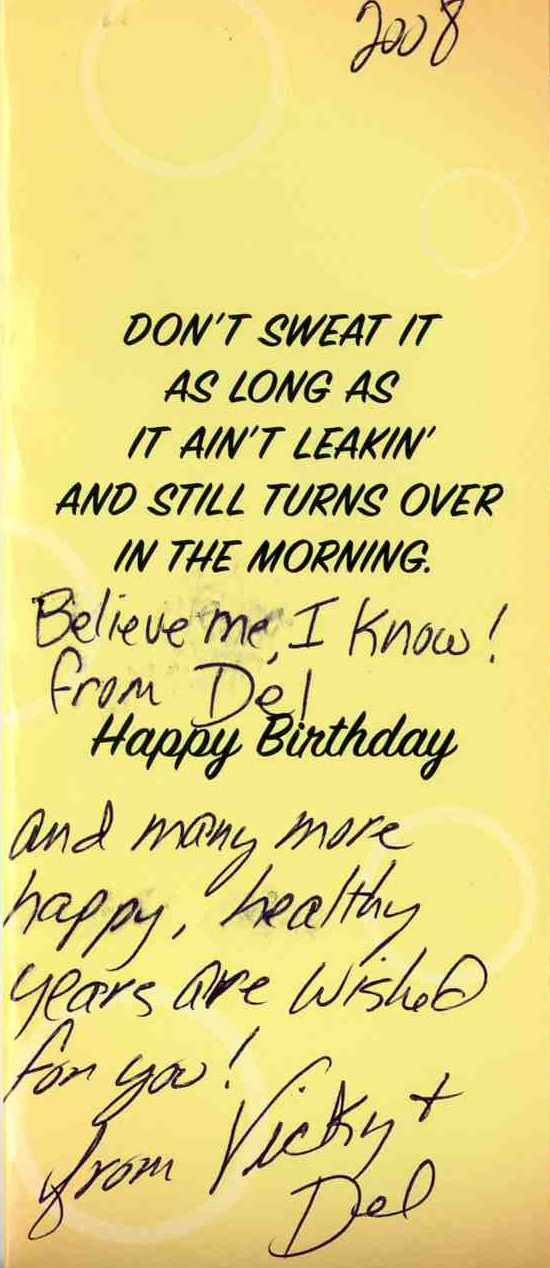 2008
DON'T SWEAT IT
AS LONG AS
IT AIN'T LEAKIN'
AND STILL TURNS OVER
IN THE MORNING.
Believe me, I Know!
from Del
Happy Birthday
and many more
happy, healthy
years are wished
for you!
from Vicky +
Del